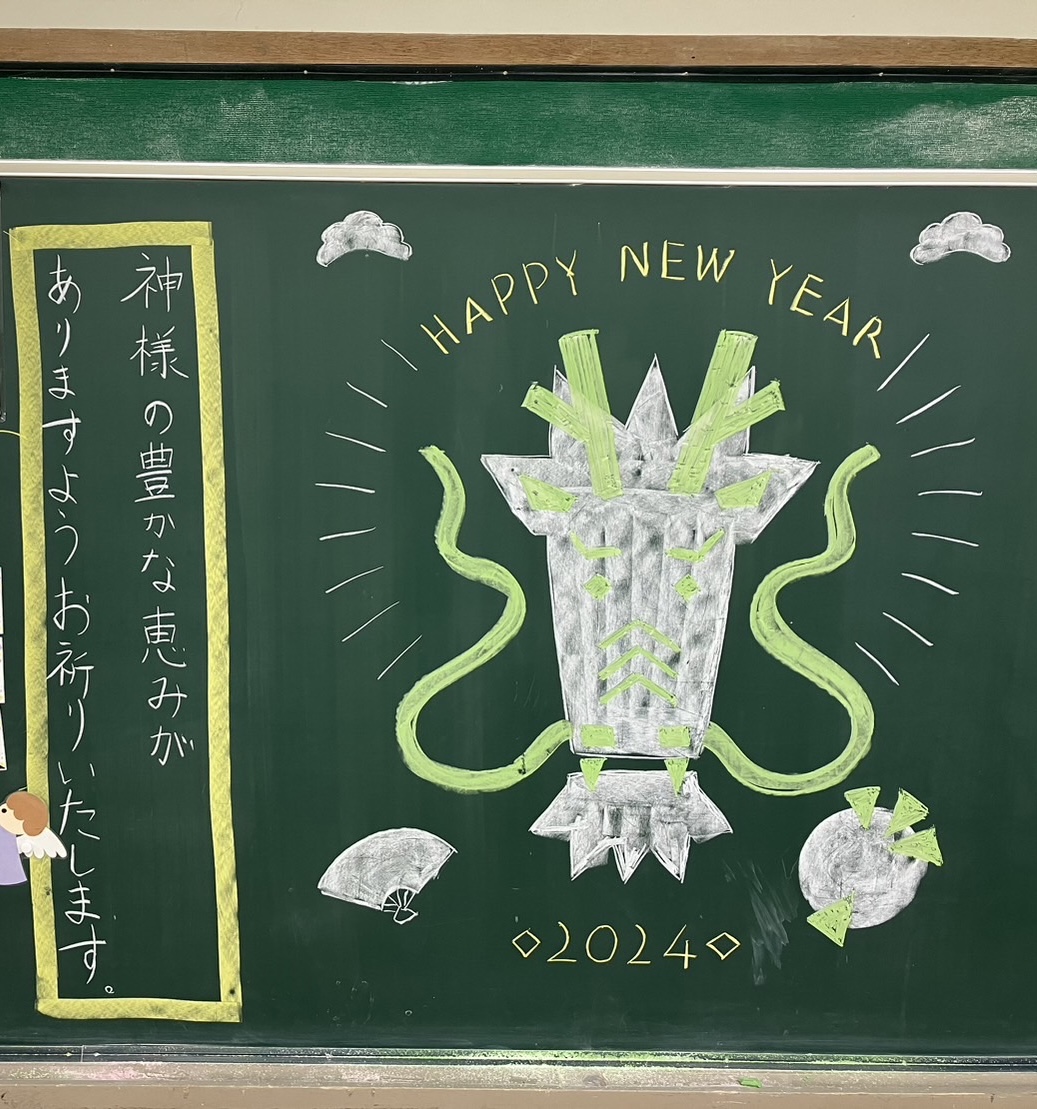 神様の豊かな恵みが
ありますようお祈りいたします。
HAPPY NEW YEAR
◇2024◇